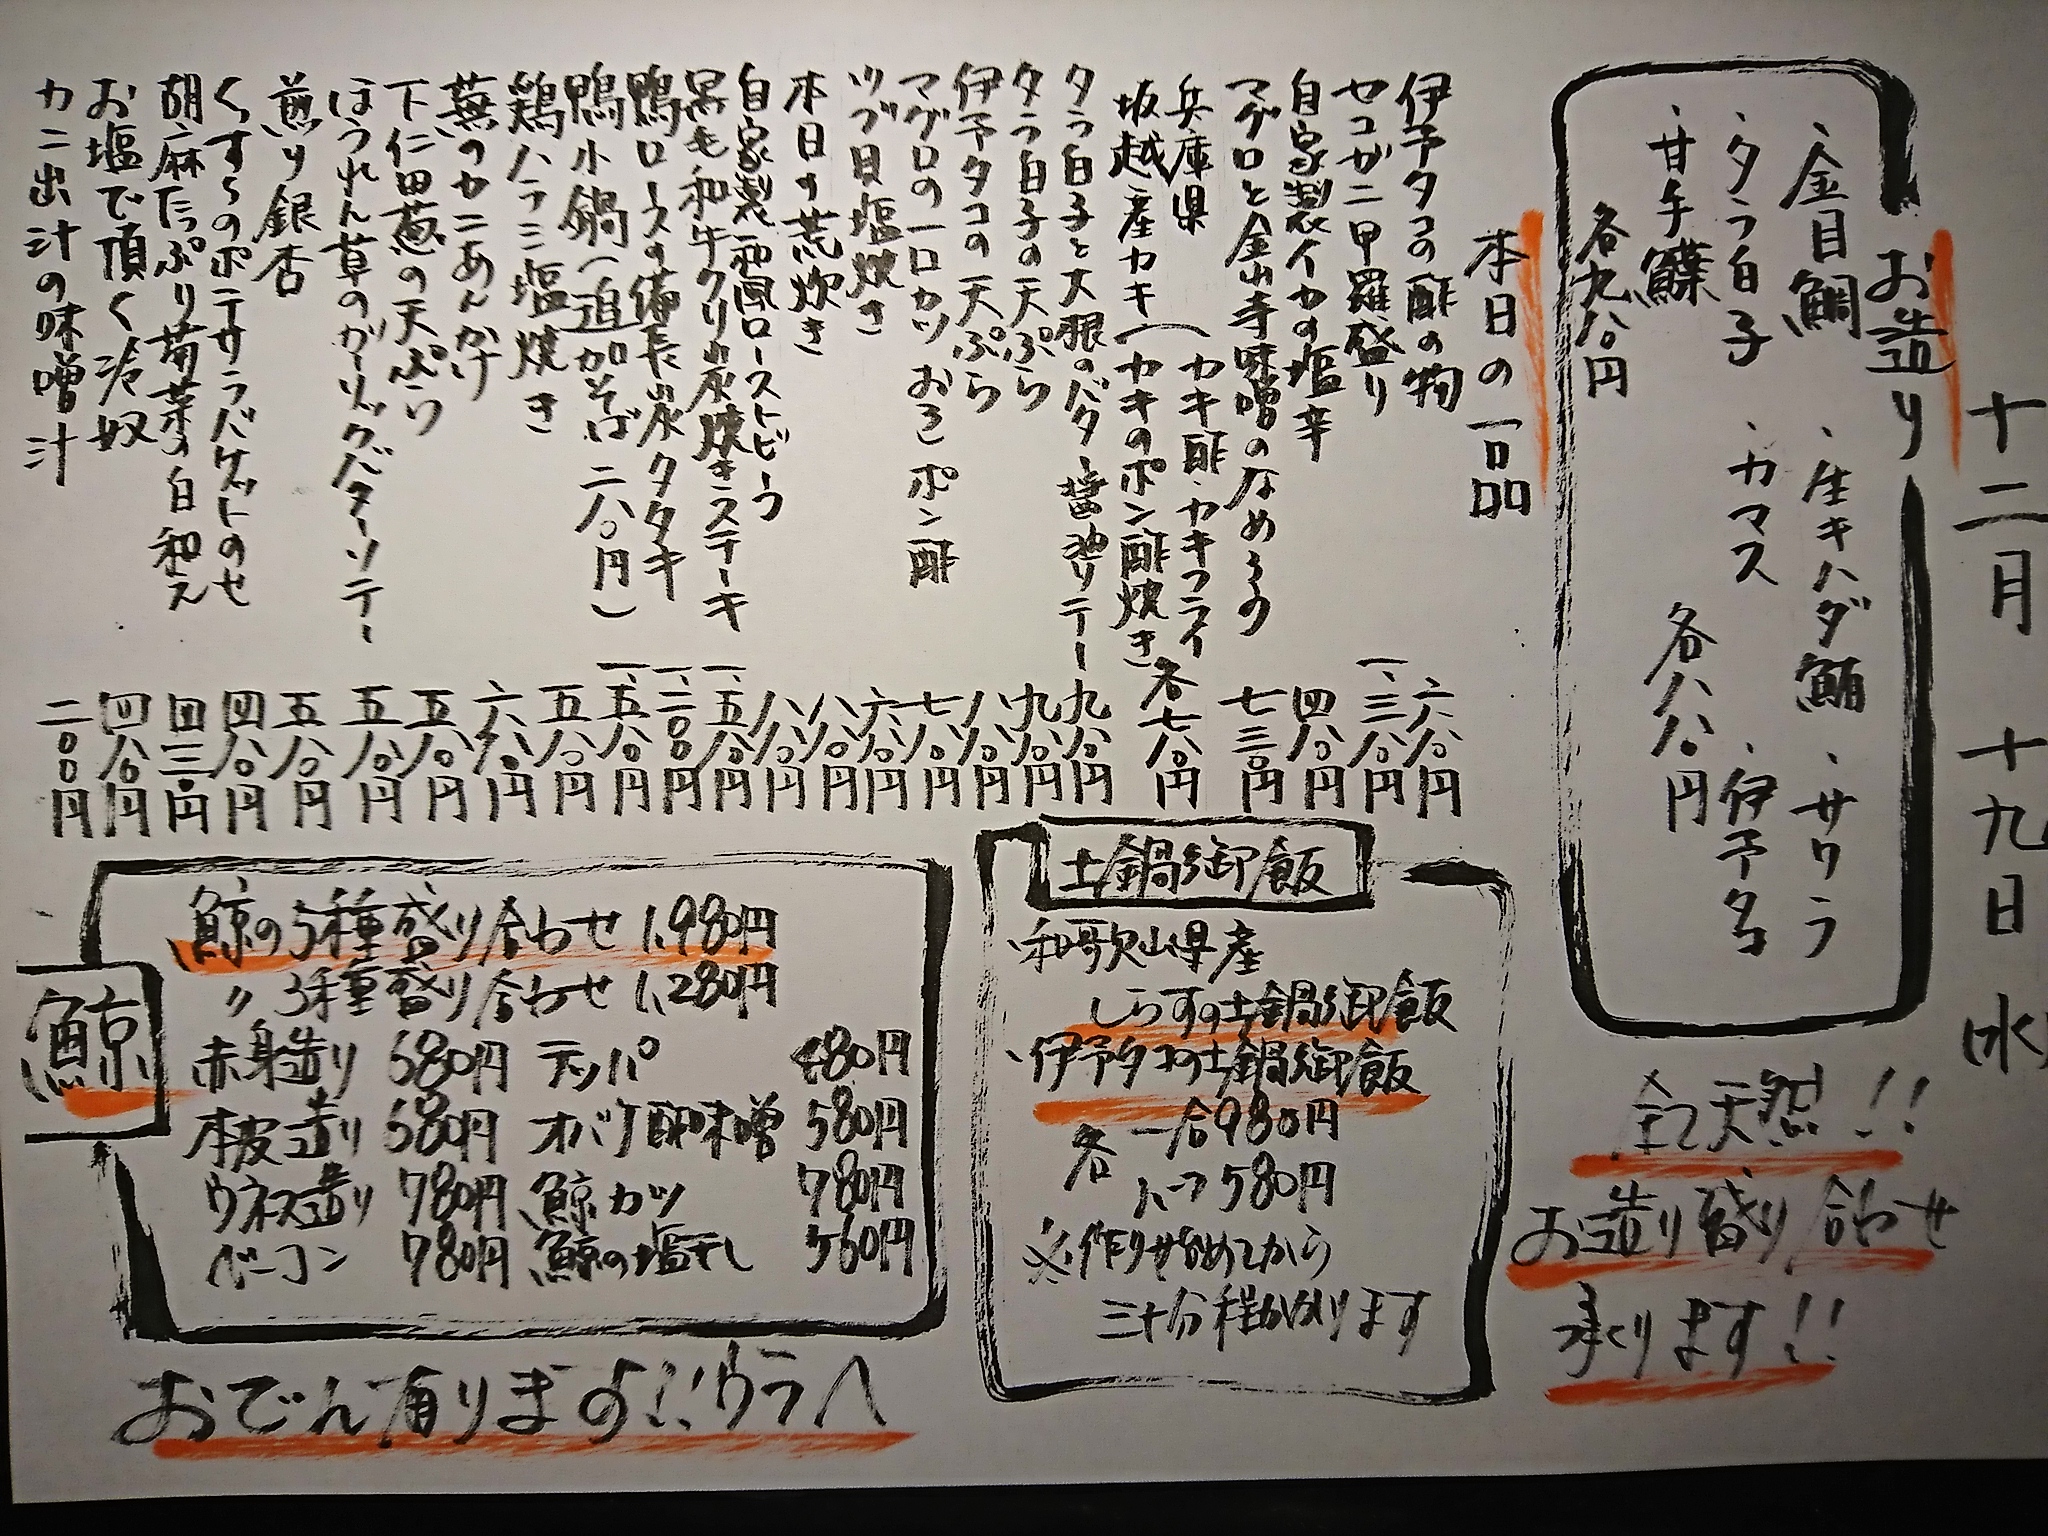 十二月 十九日 (水)
お造り
・金目鯛 ・生キハダ鮪 ・サワラ
・タラ白子 ・カマス ・伊予タコ
・甘手鰈 各八八〇円
各九八〇円
全て天然!!
お造り盛り合わせ
承ります!!
本日の一品
伊予タコの酢の物 六八〇円
セコガニ甲羅盛り 一、三八〇円
自家製イカの塩辛 四八〇円
マグロと金山寺味噌のなめろう 七三〇円
兵庫県
坂越産カキ(カキ酢・カキフライ
カキのポン酢焼き 各七八〇円
タラ白子と大根のバター醤油ソテー 九八〇円
タラ白子の天ぷら 九八〇円
伊予タコの天ぷら 八八〇円
マグロの一口カツ おろしポン酢 七八〇円
ツブ貝塩焼き 六八〇円
本日の荒炊き 八八〇円
自家製和風ローストビーフ 八八〇円
黒毛和牛クリ炭焼きステーキ 一、五八〇円
鴨ロースの備長炭タタキ 一、二〇〇円
鴨小鍋(追加そば 二八〇円) 一、五八〇円
鶏ハラミ塩焼き 五八〇円
蕪のカニあんかけ 六八〇円
下仁田葱の天ぷら 五八〇円
ほうれん草のガーリックバターソテー 五八〇円
煎り銀杏 五八〇円
くずらのポテサラバケットのせ 四八〇円
胡麻たっぷり菊菜の白和え 四三〇円
お塩で頂く冷奴 四八〇円
カニ出汁の味噌汁 二〇〇円
土鍋御飯
・和歌山県産
しらすの土鍋御飯
・伊予タコの土鍋御飯
各 一合980円
ハーフ580円
※作り始めてから
三十分程かかります
鯨
鯨の5種盛り合わせ 1,980円
〃 3種盛り合わせ 1,280円
赤身造り 680円 テッパ 480円
本皮造り 680円 オバケ酢味噌 580円
ウネス造り 780円 鯨カツ 780円
ベーコン 780円 鯨の塩干し 560円
おでん有ります!!ウラへ